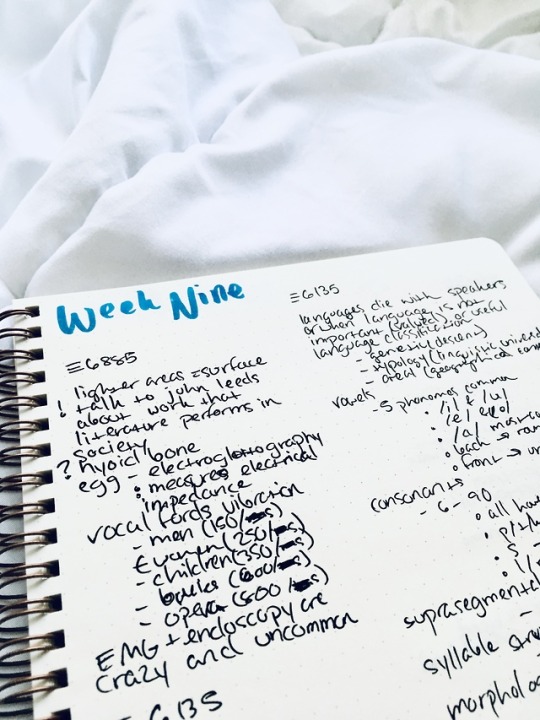 Week Nine
≡6885
! lighter areas = surface
! talk to john leeds
about work that
literature performs in
society
? hyoid bone
egg - electroglottography
• measures electrical
impedance
vocal cords vibration
- men (150/
- women (250/
- children (350/
- babies (600/
- opera (600/
EMG + endoscopy are
crazy and uncommon
≡6135
≡6135
languages die with speakers
or when language is not
important (salute) or useful
language classification
- genetic (descent)
- typology (linguistic univers
- areal (geographical
vowels
- 5 phonemes common
• /i/ & /u/
• /e/ & /o/
• /a/
• back →
• front → un
consonants
- 6-90
• all ha
• p/t/
• s
suprasegmental
syllable str
morpholo